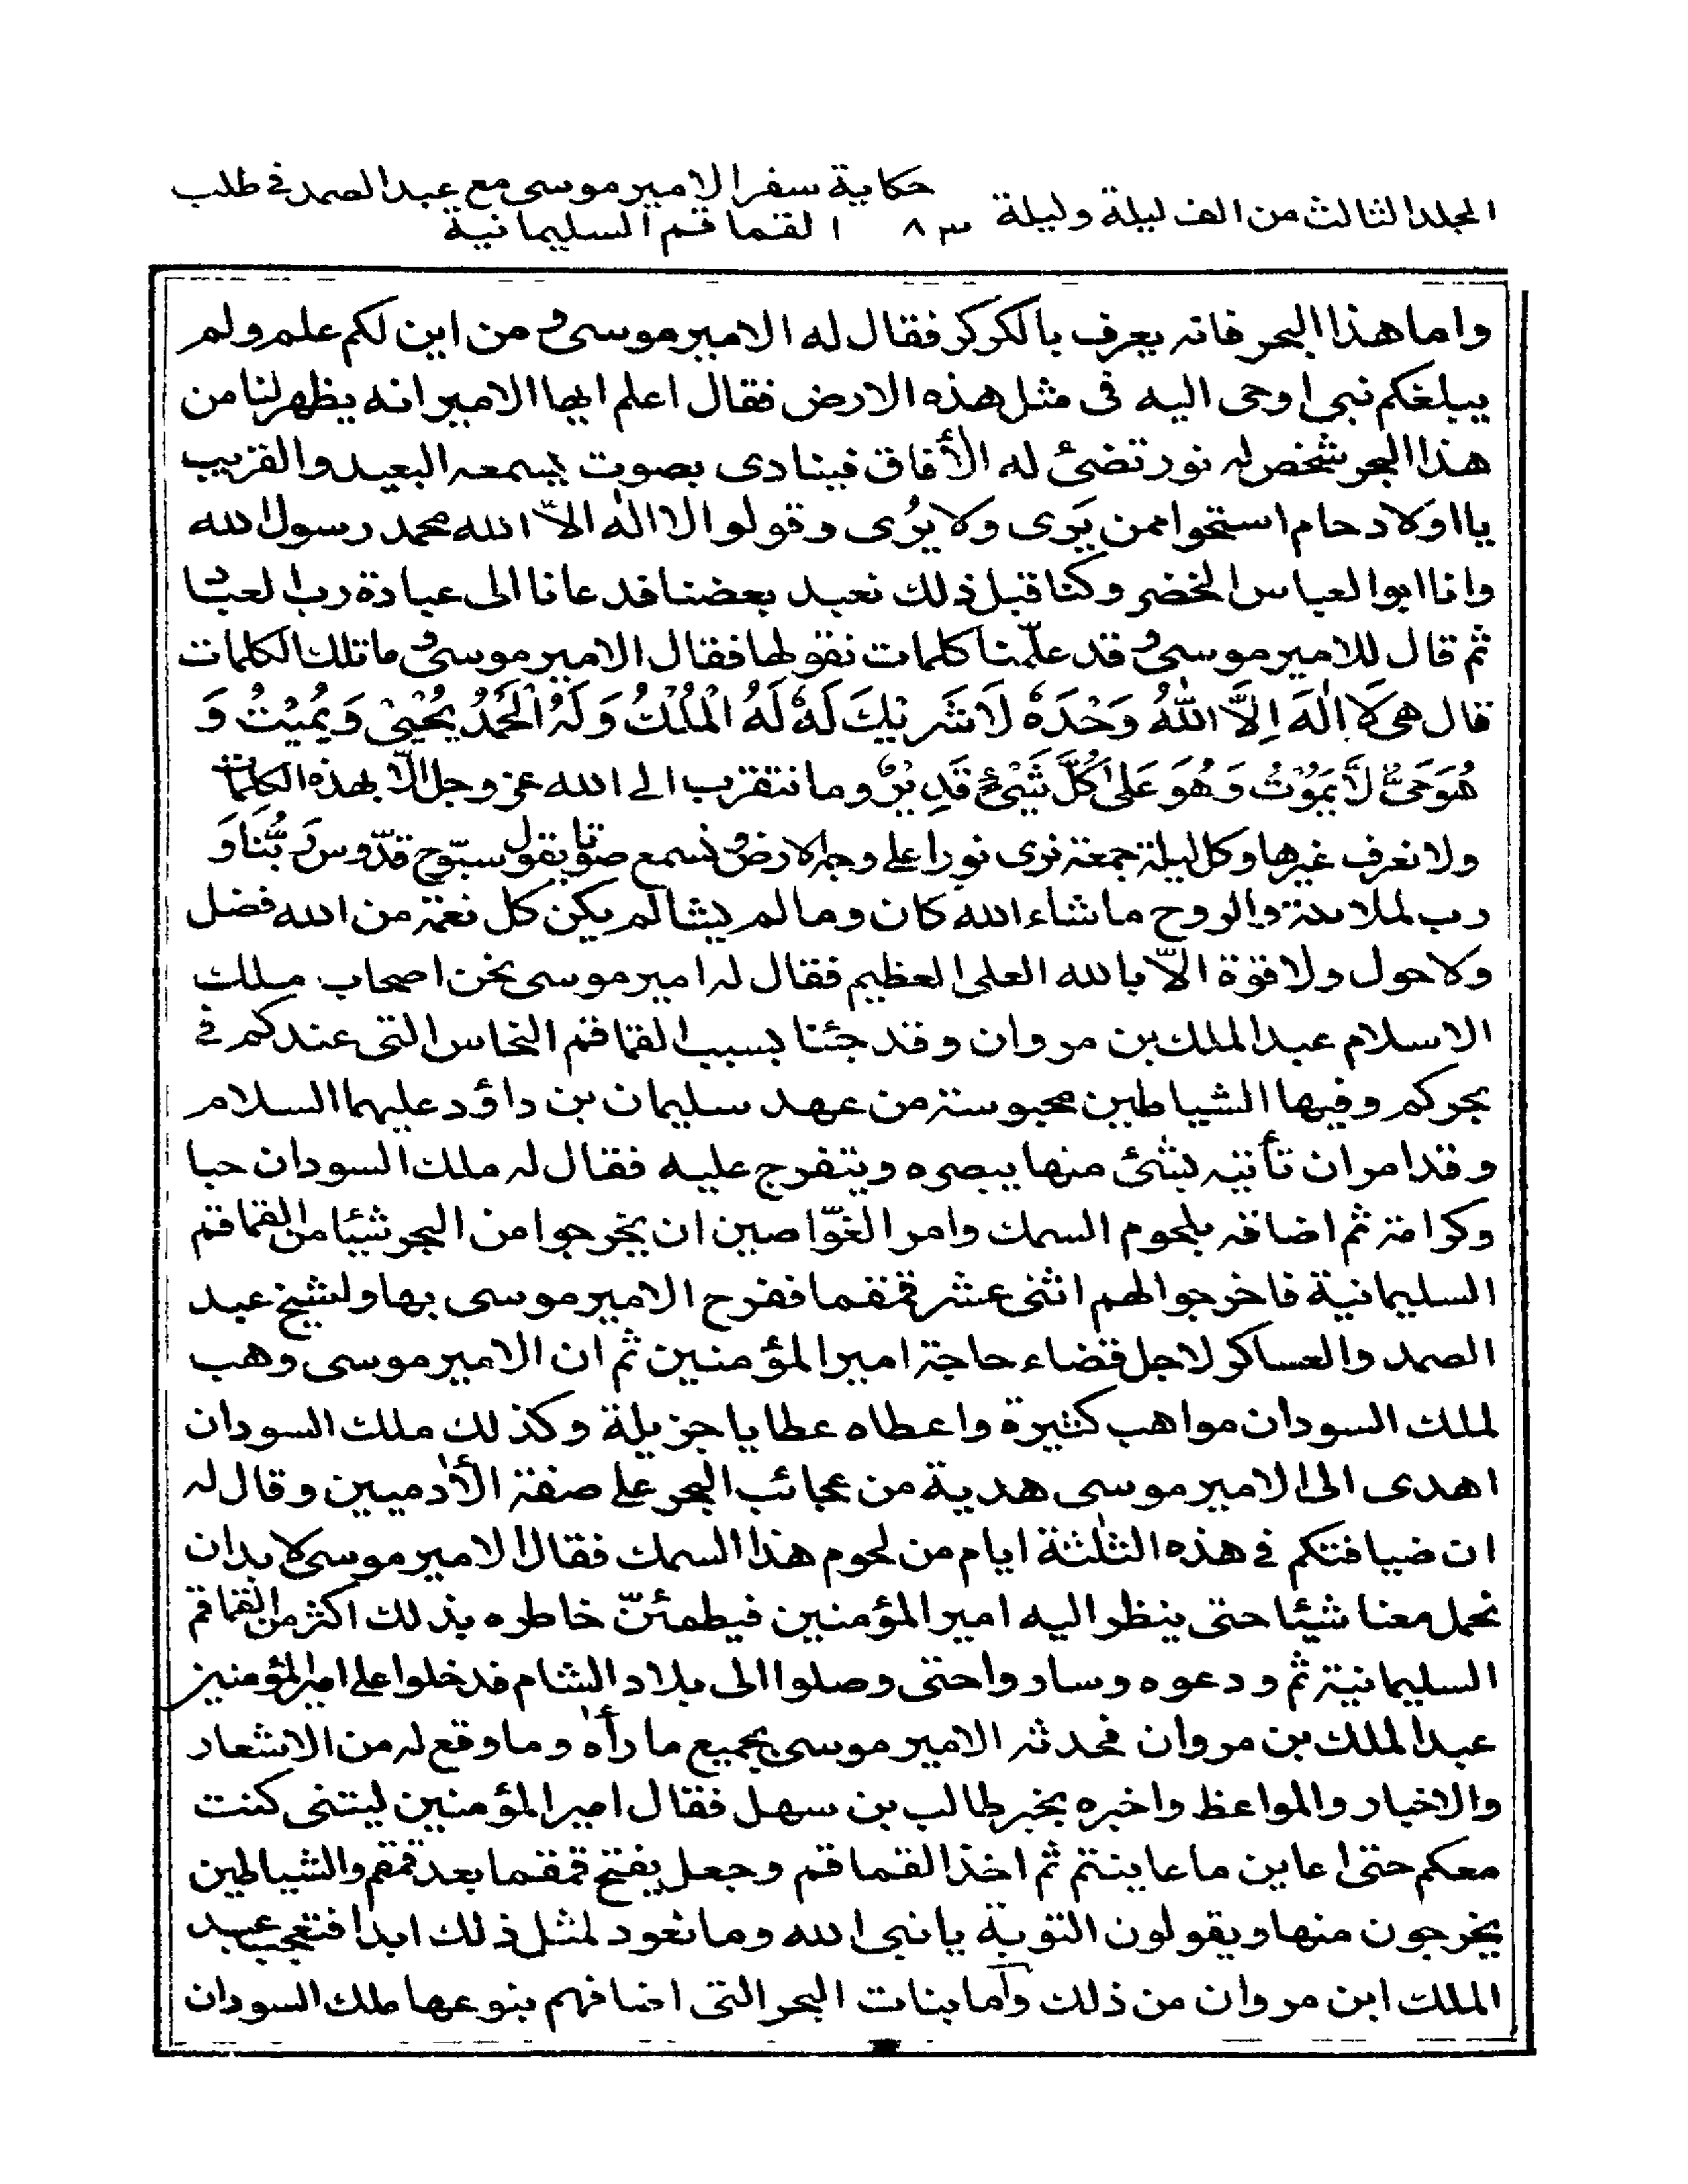 المجلد الثالث من الف ليلة وليلة ٨٣ حكاية سفر الامير موسى مع عبد الصمد في طلب
القماقم السليمانية
واما هذا البحر فانه يعرف بالكركر فقال له الامير موسى ومن اين لكم علم ولم
يبلغكم نبى اوحى اليه فى مثل هذه الارض فقال اعلم ايها الامير انه يظهر لنا من
هذا البحر شخص له نور تضئ له الأفاق فينادى بصوت يسمعه البعيد والقريب
يا اولاد حام استحوا ممن يَرى ولا يُرى وقولوا لا اله الاّ الله محمد رسول الله
وانا ابو العباس الخضر وكنا قبل ذلك نعبد بعضنا فدعانا الى عبادة رب العباد
ثم قال للامير موسى وقد علّمنا كلمات نقولها فقال الامير موسى وما تلك الكلمات
قال هى لَا اِلٰهَ اِلَّا اللهُ وَحْدَهٗ لَاشَرِيْكَ لَهٗ لَهُ الْمُلْكُ وَلَهُ الْحَمْدُ يُحْيِىْ وَيُمِيْتُ وَ
هُوَحَىٌّ لَّا يَمُوْتُ وَهُوَ عَلىٰ كُلِّ شَيْئٍ قَدِيْرٌ وما نتقرب الى الله عز وجل الّا بهذه الكلمات
ولا نعرف غيرها وكل ليلة جمعة نرى نورا على وجه الارض ونسمع صوتا يقول سبّوح قدّوس رَبُّنا وَ
رب الملائكة والروح ما شاء الله كان وما لم يشا لم يكن كل نعمة من الله فضل
ولا حول ولا قوّة الاّ بالله العلى العظيم فقال له امير موسى نحن اصحاب ملك
الاسلام عبد الملك بن مروان وقد جئنا بسبب القماقم النحاس التى عندكم فى
بحركم وفيها الشياطين محبوسة من عهد سليمان بن داؤد عليهما السلام
وقد امر ان تأتيه بشئ منها يبصره ويتفرج عليه فقال له ملك السودان حبا
وكرامة ثم اضافه بلحوم السمك وامر الغوّاصين ان يخرجوا من البحر شيئا من القماقم
السليمانية فاخرجوا لهم اثنى عشر قمقما ففرح الامير موسى بها ولشيخ عبد
الصمد والعساكر لاجل قضاء حاجة امير المؤمنين ثم ان الامير موسى وهب
لملك السودان مواهب كثيرة واعطاه عطايا جزيلة وكذلك ملك السودان
اهدى الى الامير موسى هدية من عجائب البحر على صفة الأدميين وقال له
ان ضيافتكم فى هذه الثلثة ايام من لحوم هذا السمك فقال الامير موسى لا بد ان
نحمل معنا شيئا حتى ينظر اليه امير المؤمنين فيطمئنّ خاطره بذلك اكثر من القماقم
السليمانية ثم ودعوه وساروا حتى وصلوا الى بلاد الشام فدخلوا على امير المؤمنين
عبد الملك بن مروان فحدثه الامير موسى بجميع ما رأه وما وقع له من الاشعار
والاخبار والمواعظ واخبره بخبر طالب بن سهل فقال امير المؤمنين ليتنى كنت
معكم حتى اعاين ما عاينتم ثم اخذ القماقم وجعل يفتح قمقما بعد قمقم والشياطين
يخرجون منها ويقولون التوبة يا نبى الله وما نعود لمثل ذلك ابدا فتعجب عبد
الملك ابن مروان من ذلك وأما بنات البحر التى اضافهم بنوعها ملك السودان